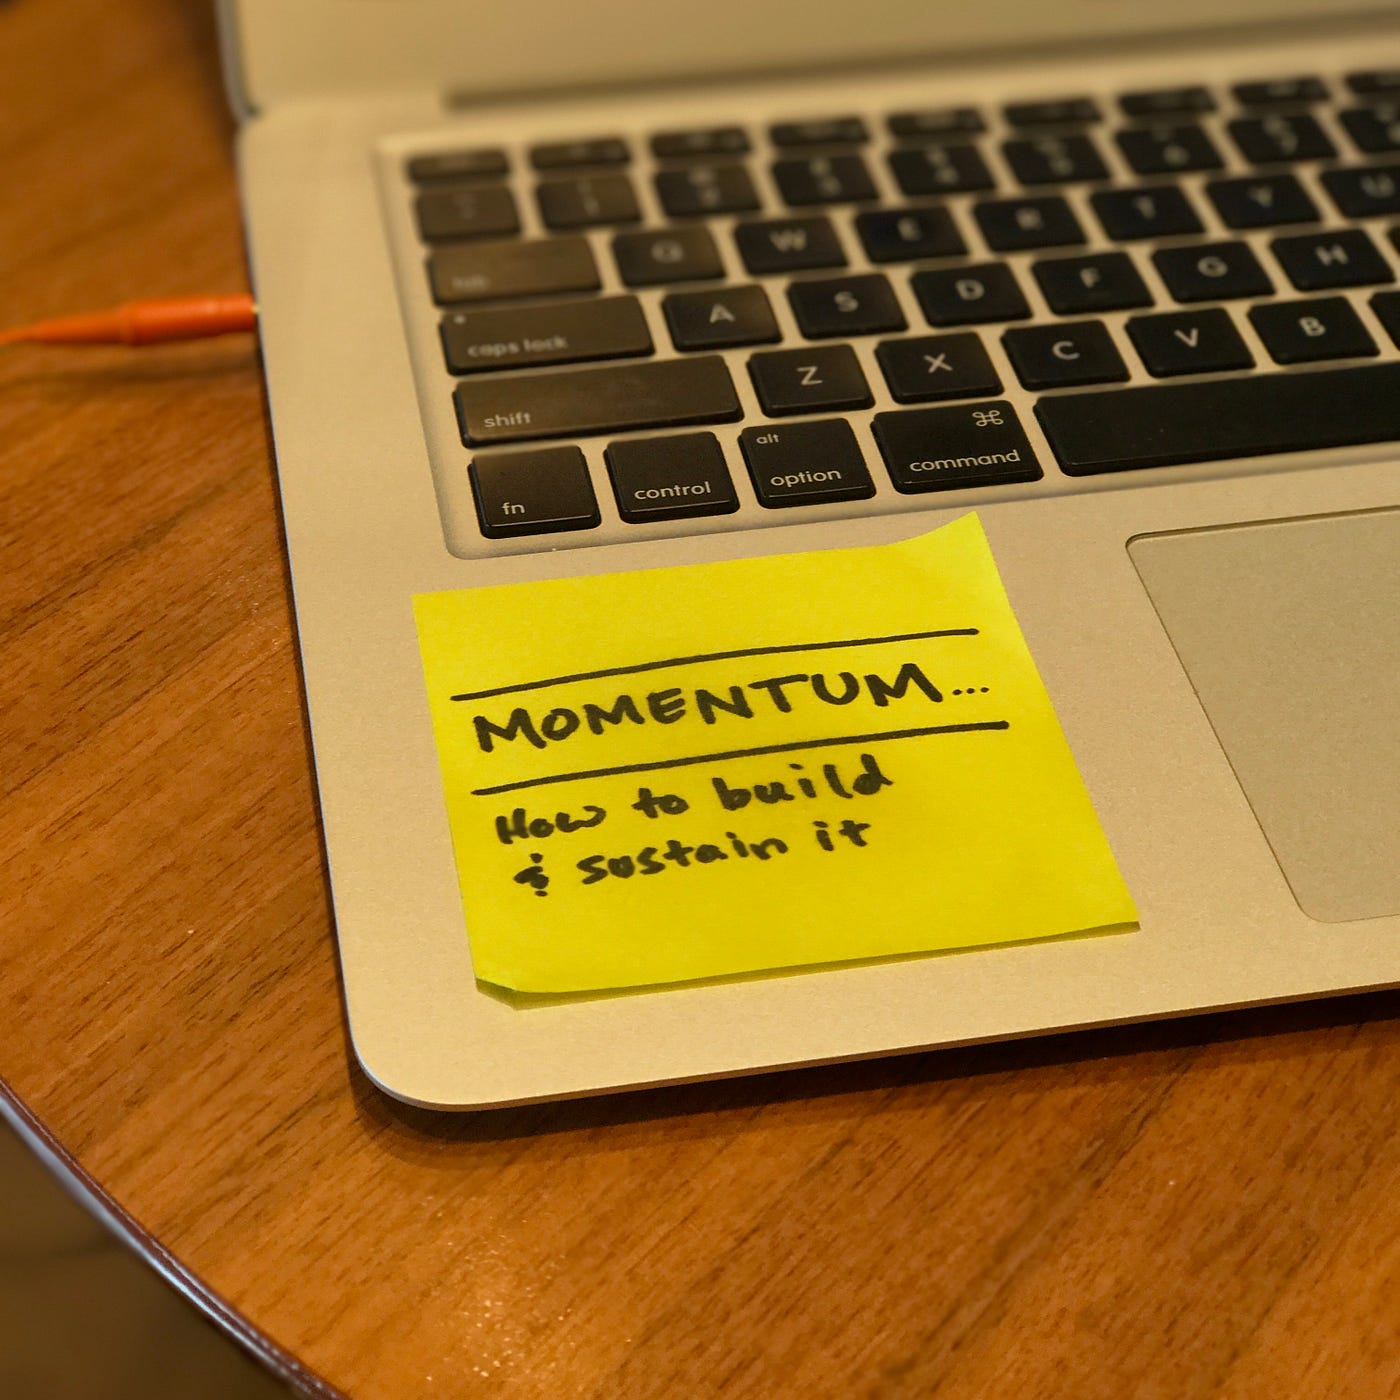 Q W E R T Y U
caps lock A S D F G H
shift Z X C V B
alt ⌘
fn control option command
MOMENTUM...
How to build
& sustain it